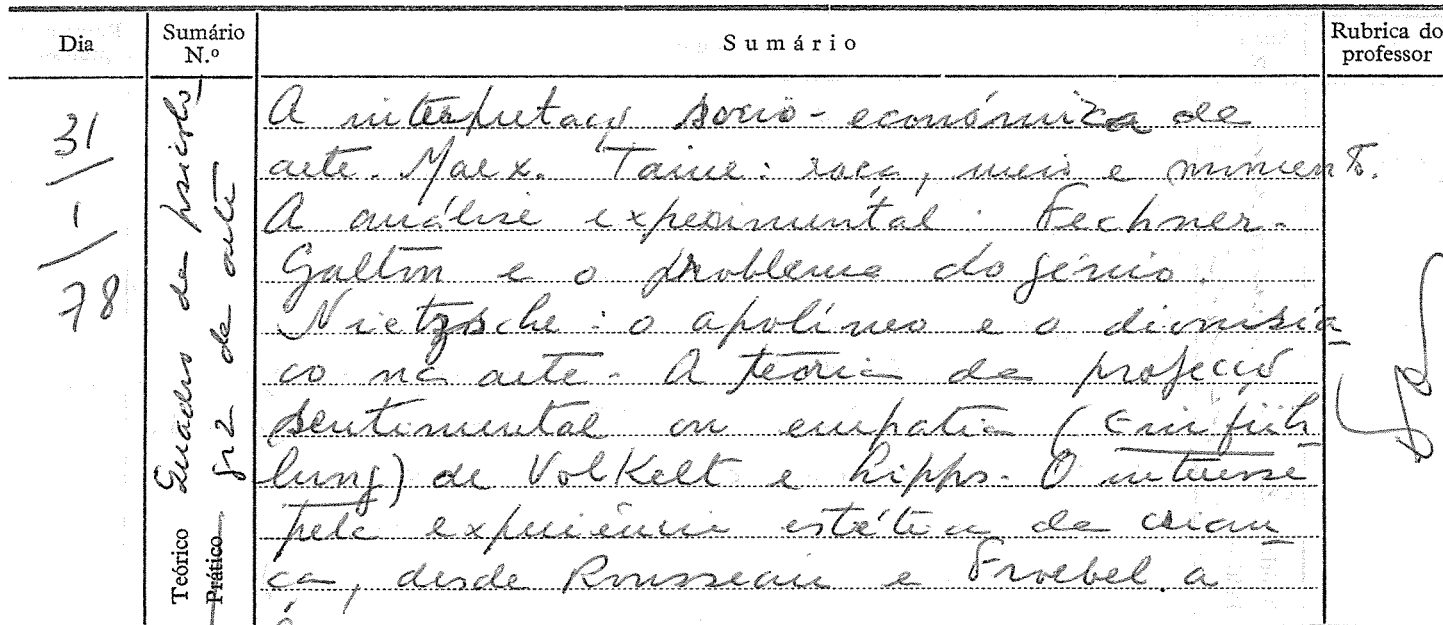 Dia
Sumário N.º
Sumário
Rubrica do professor
31
1
78
Teórico
Prático
Quadro da psicolo
gia da arte
A interpretação socio-económica de
arte. Marx. Taine: raça, meio e momento.
A análise experimental. Fechner.
Galton e o problema do génio.
Nietzsche: o apolíneo e o dionisía
co na arte. A teoria da projecção
sentimental ou empatia (Einfüh
lung) de Volkelt e Lipps. O interesse
pela experiência estética da crian
ça, desde Rousseau e Froebel a